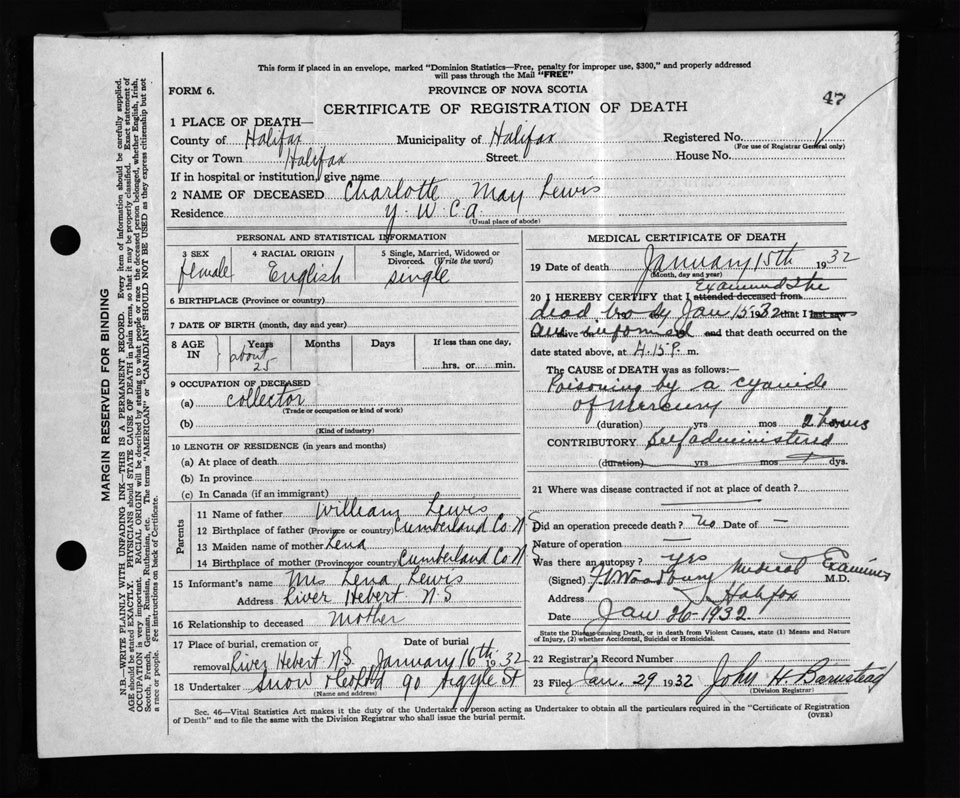 This form if placed in an envelope, marked "Dominion Statistics—Free, penalty for improper use, $300," and properly addressed
will pass through the Mail "FREE"
FORM 6.
PROVINCE OF NOVA SCOTIA
47
CERTIFICATE OF REGISTRATION OF DEATH
1 PLACE OF DEATH—
County of Halifax Municipality of Halifax Registered No.
(For use of Registrar General only)
City or Town Halifax Street House No.
If in hospital or institution, give name
2 NAME OF DECEASED Charlotte May Lewis
Residence Y. W. C. A.
(Usual place of abode)
PERSONAL AND STATISTICAL INFORMATION
3 SEX
female
4 RACIAL ORIGIN
English
5 Single, Married, Widowed or
Divorced. (Write the word)
single
6 BIRTHPLACE (Province or country)
7 DATE OF BIRTH (month, day and year)
8 AGE
IN
Years Months Days If less than one day,
about
25
hrs. or min.
9 OCCUPATION OF DECEASED
(a) collector
(Trade or occupation or kind of work)
(b)
(Kind of industry)
10 LENGTH OF RESIDENCE (in years and months)
(a) At place of death
(b) In province
(c) In Canada (if an immigrant)
Parents
11 Name of father William Lewis
12 Birthplace of father (Province or country) Cumberland Co. N S
13 Maiden name of mother Lena
14 Birthplace of mother (Province or country) Cumberland Co N S
15 Informant's name Mrs Lena Lewis
Address River Hebert N.S
16 Relationship to deceased Mother
17 Place of burial, cremation or Date of burial
removal River Hebert N.S. January 16th 1932
18 Undertaker Snow 90 Argyle St
(Name and address)
MEDICAL CERTIFICATE OF DEATH
19 Date of death January 15th 1932
(Month, day and year)
20 I HEREBY CERTIFY that I attended deceased from Examined the
dead body Jan 15 1932 that I last saw
am alive on informed and that death occurred on the
date stated above, at 4.15 P. m.
The CAUSE of DEATH was as follows:—
Poisoning by a cyanide
of Mercury
(duration) yrs mos 2 hours
CONTRIBUTORY Self administered
(duration) yrs mos dys.
21 Where was disease contracted if not at place of death?
Did an operation precede death? No Date of —
Nature of operation —
Was there an autopsy? yes
(Signed) Woodbury Medical Examiner
M.D.
Address Halifax
Date Jan 26 1932
State the Disease causing Death, or in death from Violent Causes, state (1) Means and Nature
of Injury, (2) whether Accidental, Suicidal or Homicidal.
22 Registrar's Record Number
23 Filed Jan. 29 1932 John H. Barnstead
(Division Registrar)
Sec. 46—Vital Statistics Act makes it the duty of the Undertaker or person acting as Undertaker to obtain all the particulars required in the "Certificate of Registration
of Death" and to file the same with the Division Registrar who shall issue the burial permit.
(OVER)
MARGIN RESERVED FOR BINDING
N.B.—WRITE PLAINLY WITH UNFADING INK—THIS IS A PERMANENT RECORD. Every item of information should be carefully supplied.
AGE should be stated EXACTLY. PHYSICIANS should STATE CAUSE OF DEATH in plain terms, so that it may be properly classified. Exact statement of
OCCUPATION is very important. RACIAL ORIGIN will be described by stating to what people or race the deceased person belonged, whether English, Irish,
Scotch, French, German, Russian, Ruthenian, etc. The terms "AMERICAN" or "CANADIAN" SHOULD NOT BE USED as they express citizenship but not
a race or people. See instructions on back of Certificate.